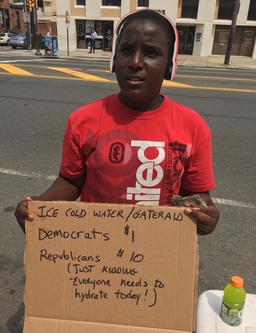 ecko
ited
ICE COLD WATER/GATERALD
DEMOCRATS $1
REPUBLICANS $10
(JUST KIDDING
"Everyone needs to
hydrate today!)